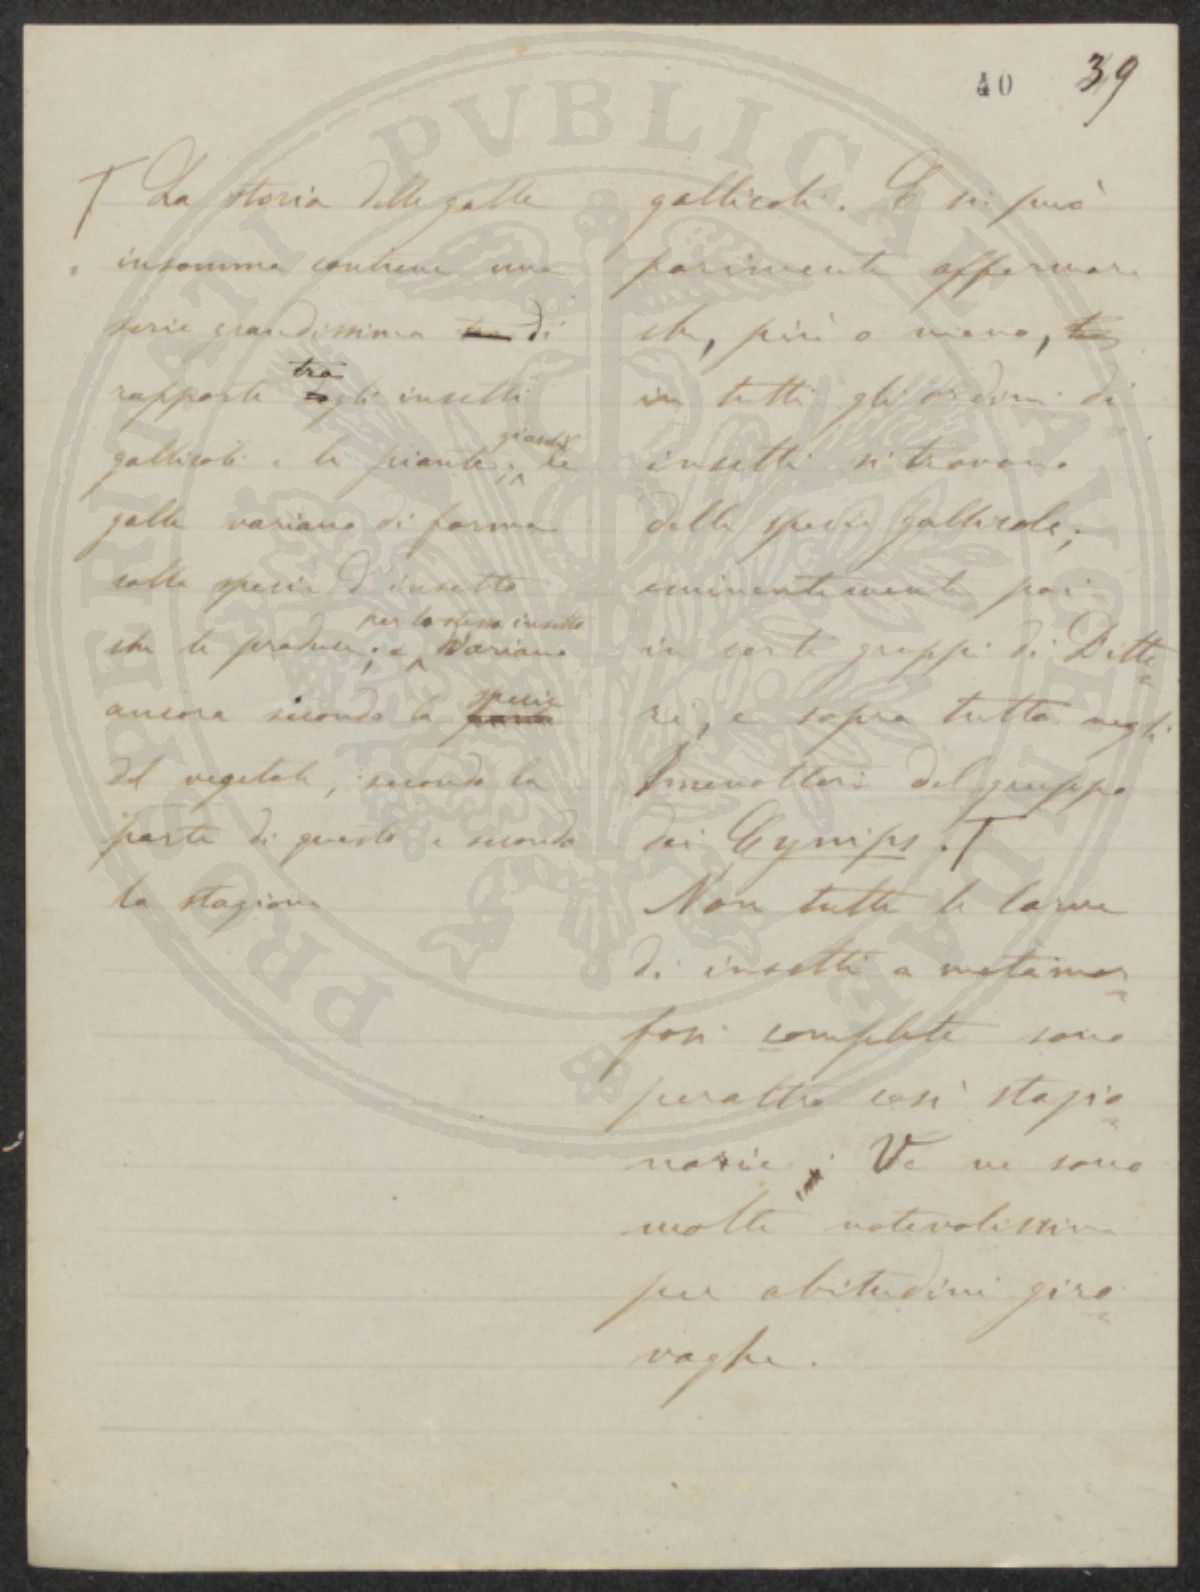 40 39
La storia delle galle
insomma contiene una
serie grandissima di
rapporti tra gli insetti
gallicoli e le piante; giacchè le
galle variano di forma
colla specie d'insetto
che le produce; e per lo stesso insetto variano
ancora secondo la specie
del vegetale, secondo la
parte di questo e secondo
la stagione
gallicoli. E si può
parimente affermare
che, più o meno,
in tutti gli ordini di
insetti si trovano
delle specie gallicole;
eminentemente poi
in certi gruppi di Ditte
ri, e sopra tutto negli
Imenotteri del gruppo
dei Cynips.
Non tutte le larve
di insetti a metamor
fosi complete sono
peraltro così stazio
narie; Ve ne sono
molte notevolissime
per abitudini giro
vaghe.
PRO PERIVATI PVBLICAE ARCHIVI DNA E